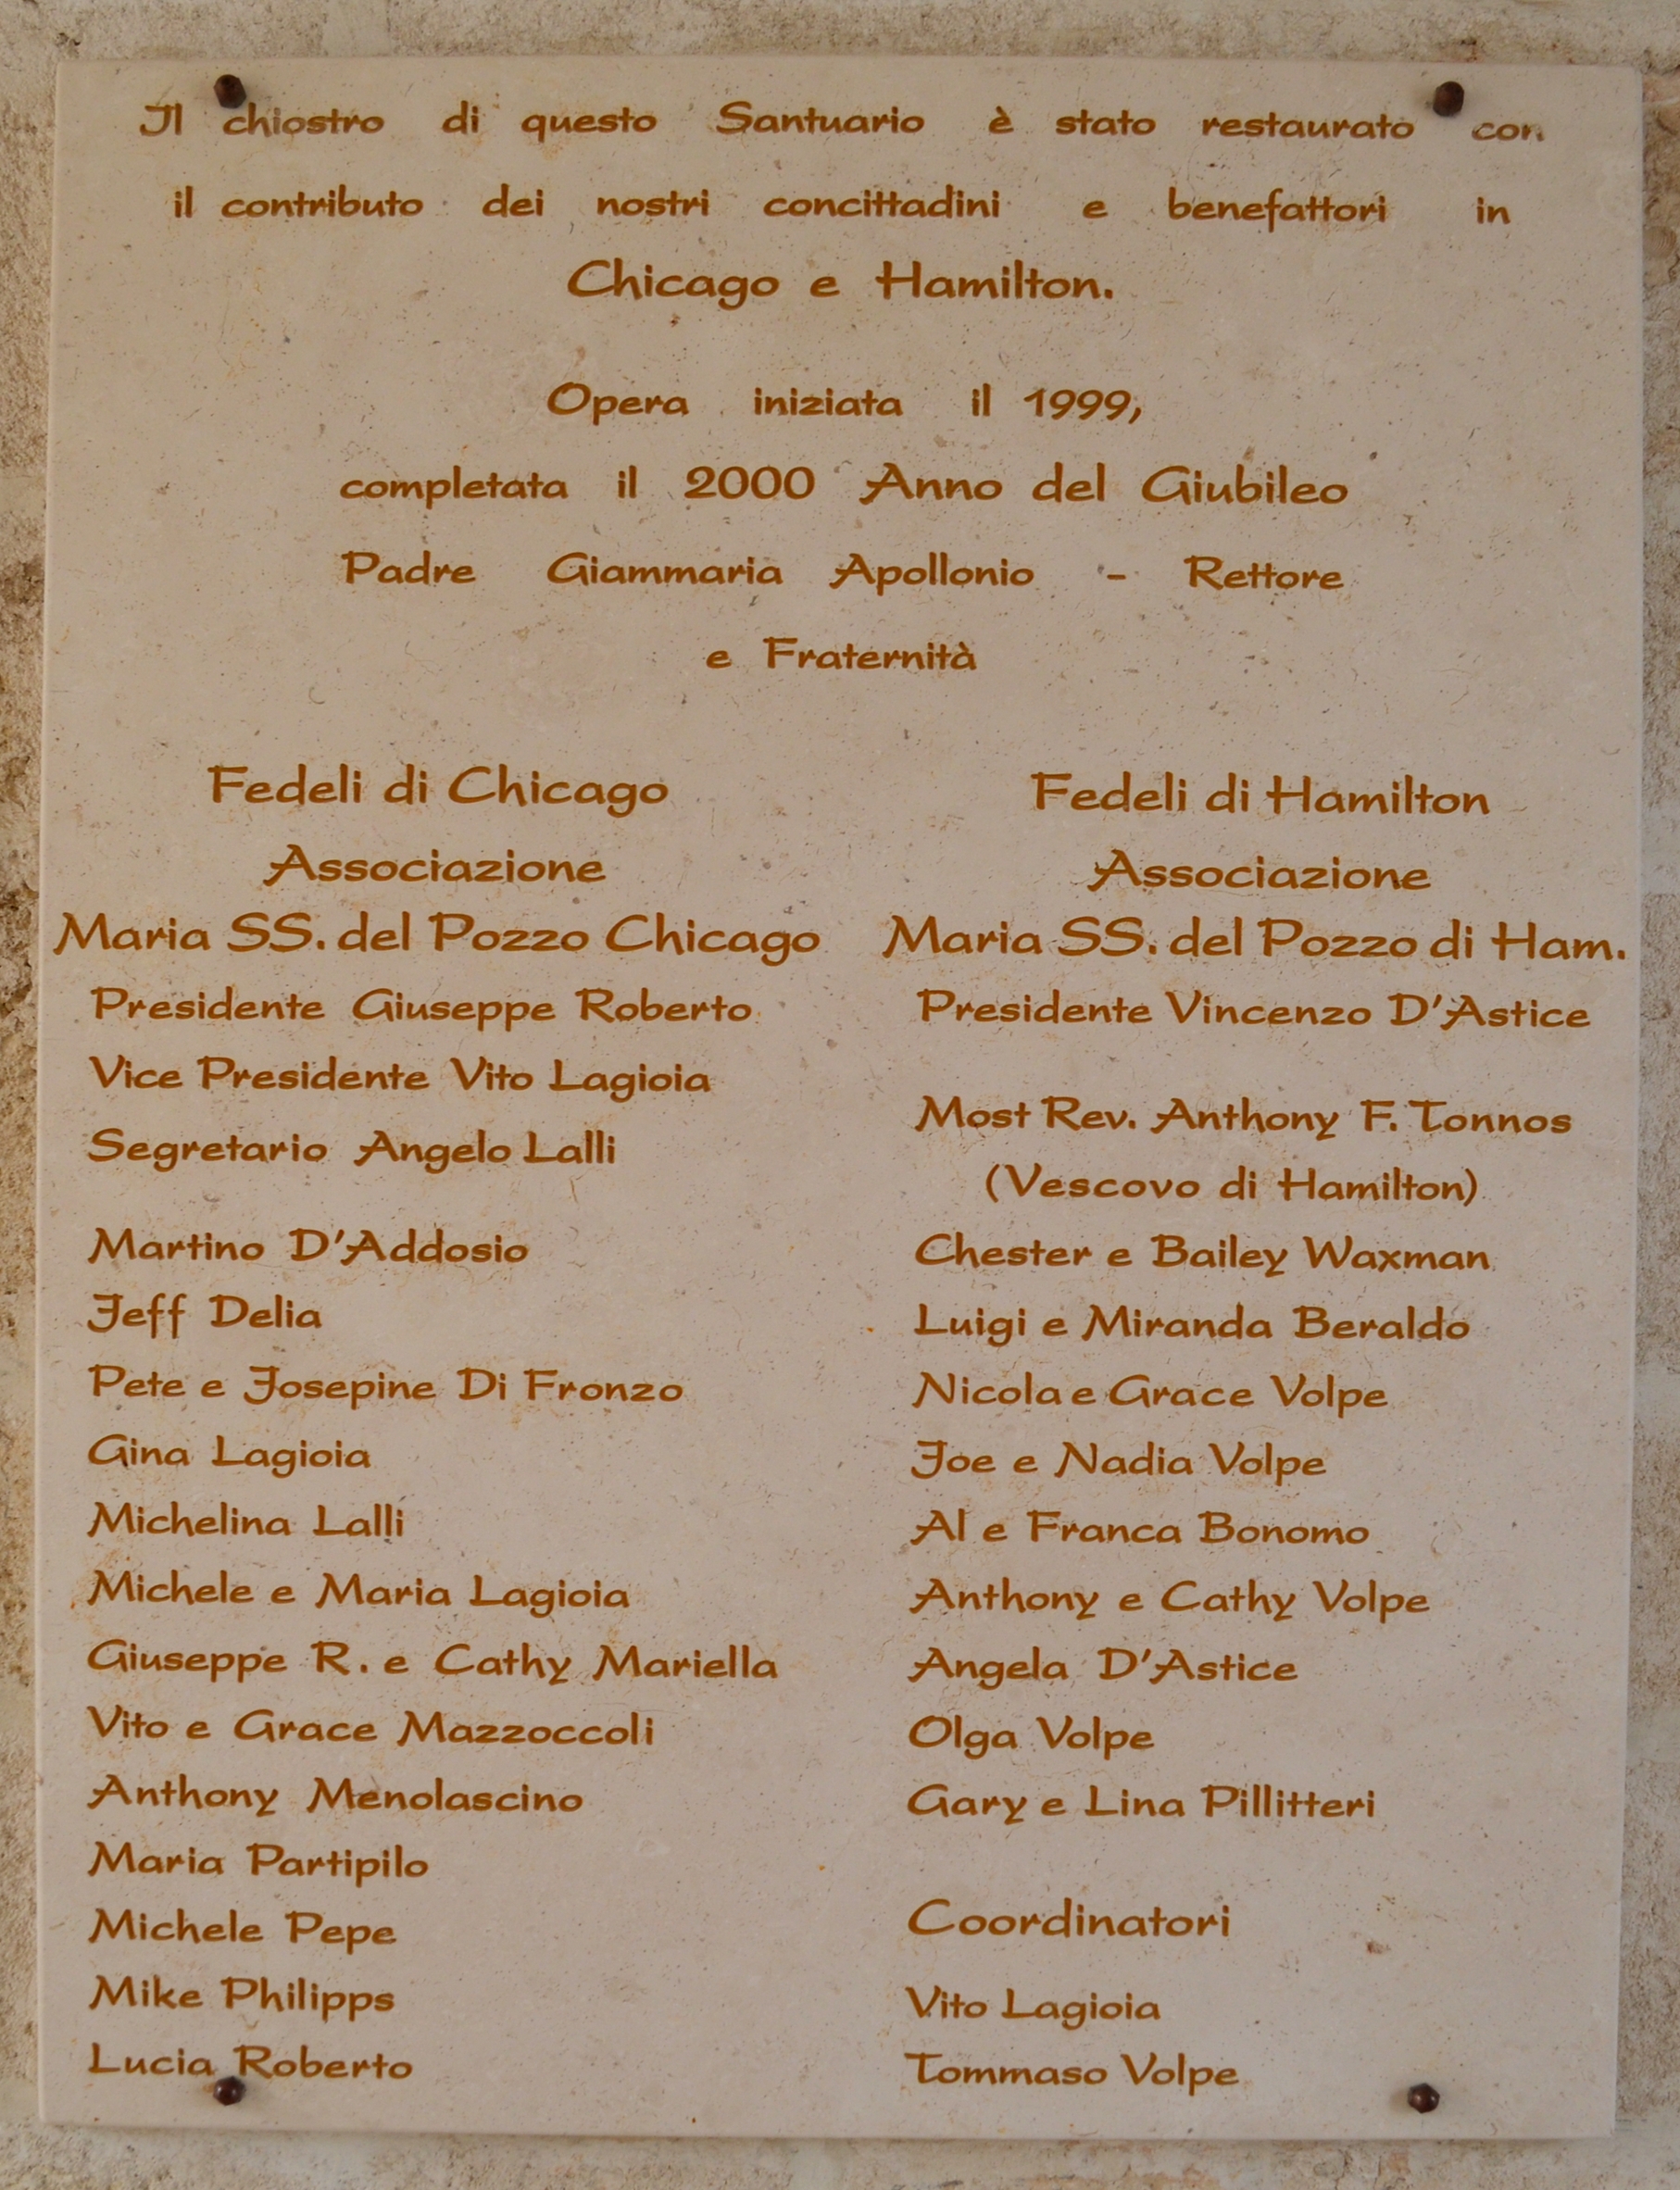 Il chiostro di questo Santuario è stato restaurato con
il contributo dei nostri concittadini e benefattori in
Chicago e Hamilton.
Opera iniziata il 1999,
completata il 2000 Anno del Giubileo
Padre Giammaria Apollonio - Rettore
e Fraternità
Fedeli di Chicago
Associazione
Maria SS. del Pozzo Chicago
Presidente Giuseppe Roberto
Vice Presidente Vito Lagioia
Segretario Angelo Lalli
Martino D'Addosio
Jeff Delia
Pete e Josepine Di Fronzo
Gina Lagioia
Michelina Lalli
Michele e Maria Lagioia
Giuseppe R. e Cathy Mariella
Vito e Grace Mazzoccoli
Anthony Menolascino
Maria Partipilo
Michele Pepe
Mike Philipps
Lucia Roberto
Fedeli di Hamilton
Associazione
Maria SS. del Pozzo di Ham.
Presidente Vincenzo D'Astice
Most Rev. Anthony F. Tonnos
(Vescovo di Hamilton)
Chester e Bailey Waxman
Luigi e Miranda Beraldo
Nicola e Grace Volpe
Joe e Nadia Volpe
Al e Franca Bonomo
Anthony e Cathy Volpe
Angela D'Astice
Olga Volpe
Gary e Lina Pillitteri
Coordinatori
Vito Lagioia
Tommaso Volpe